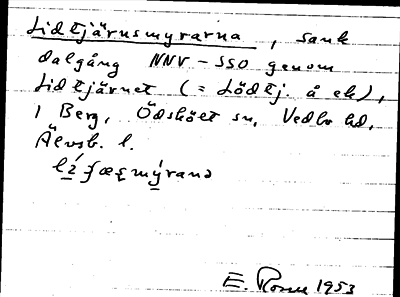 Lidtjärnsmyrarna, sank
dalgång NNV-SSO genom
Lidtjärnet (= Lödtj. å ek),
i Berg, Ödskölt sn, Vedbo hd,
Älvsb. l.
mýrana
E. 1953